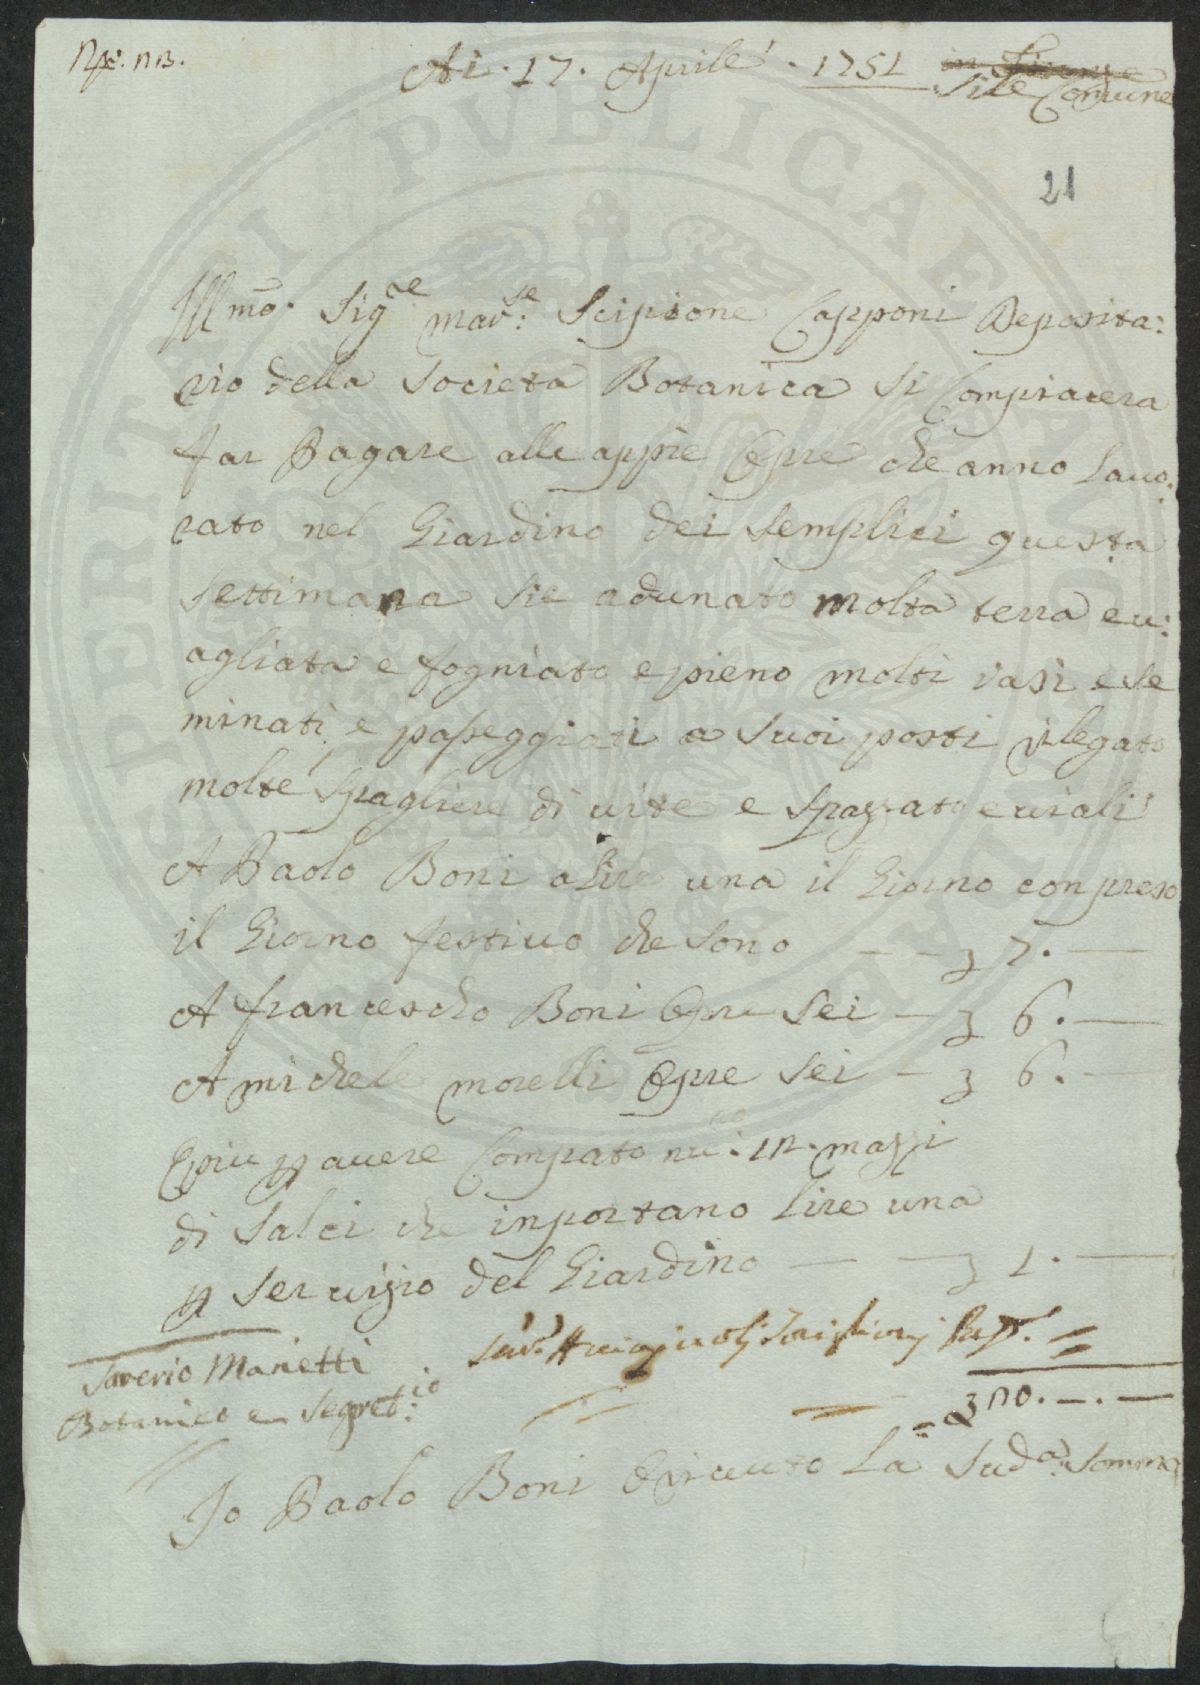 Ai. 17. Aprile. 1751 in Firenze
Stile Comune
21
Ill.mo Sig.re Mar.se Scipione Capponi Deposita:
rio della Societa Botanica Si Compiacera
far Pagare alle appie Opre che anno Lauo:
rato nel Giardino dei Semplici questa
Settimana Sie adunato molta terra eu:
agliata e fogniato e pieno molti vasi e Se
minati, e passeggiati a Suoi posti rilegato
molte Spagliere di vite e Spazzato e uiali
A Paolo Boni a Lire una il Giorno conpreso
il Giorno festiuo che Sono — — 7. —
A francescho Boni Opre Sei — 6. —
A michele morelli Opre Sei — 6. —
Epiu p auere Comprato nu:o 12. mazzi
di Salci che inportano Lire una
p Seruizio del Giardino — — 1. —
Saverio Manetti
Botanico e Segret:io
20. —. —
Io Paolo Boni O riceuto La Sud.a Somma